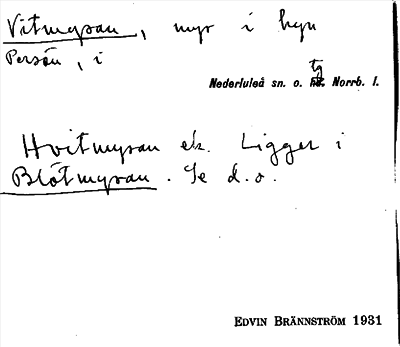 Vitmyran, myr i byn
Persön, i
Nederluleå sn. o. tg. Norrb. l.
Hvitmyran ek. Ligger i
Blötmyran. Se d.o.
EDVIN BRÄNNSTRÖM 1931